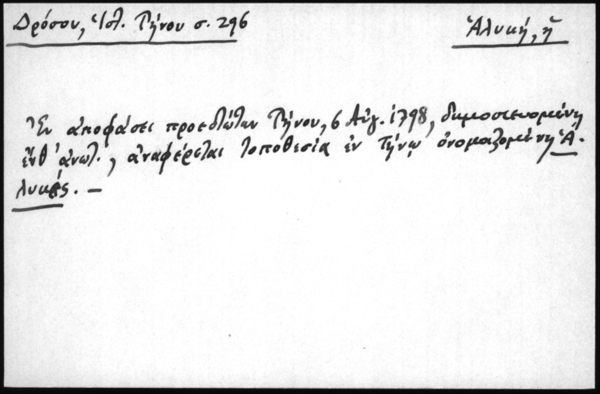 Δρόσου, Ἱστ. Τήνου σ. 296
Ἁλυκή, ἡ
Ἐν ἀποφάσει προεστώτων Τήνου, 6 Αὐγ. 1798, δημοσιευομένῃ
ἔνθ' ἀνωτ., ἀναφέρεται τοποθεσία ἐν Τήνῳ ὀνομαζομένη Ἁ-
λυκές. —